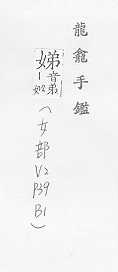 龍龕手鑑
娣音弟|姒
(女部
V2
P39
B1)